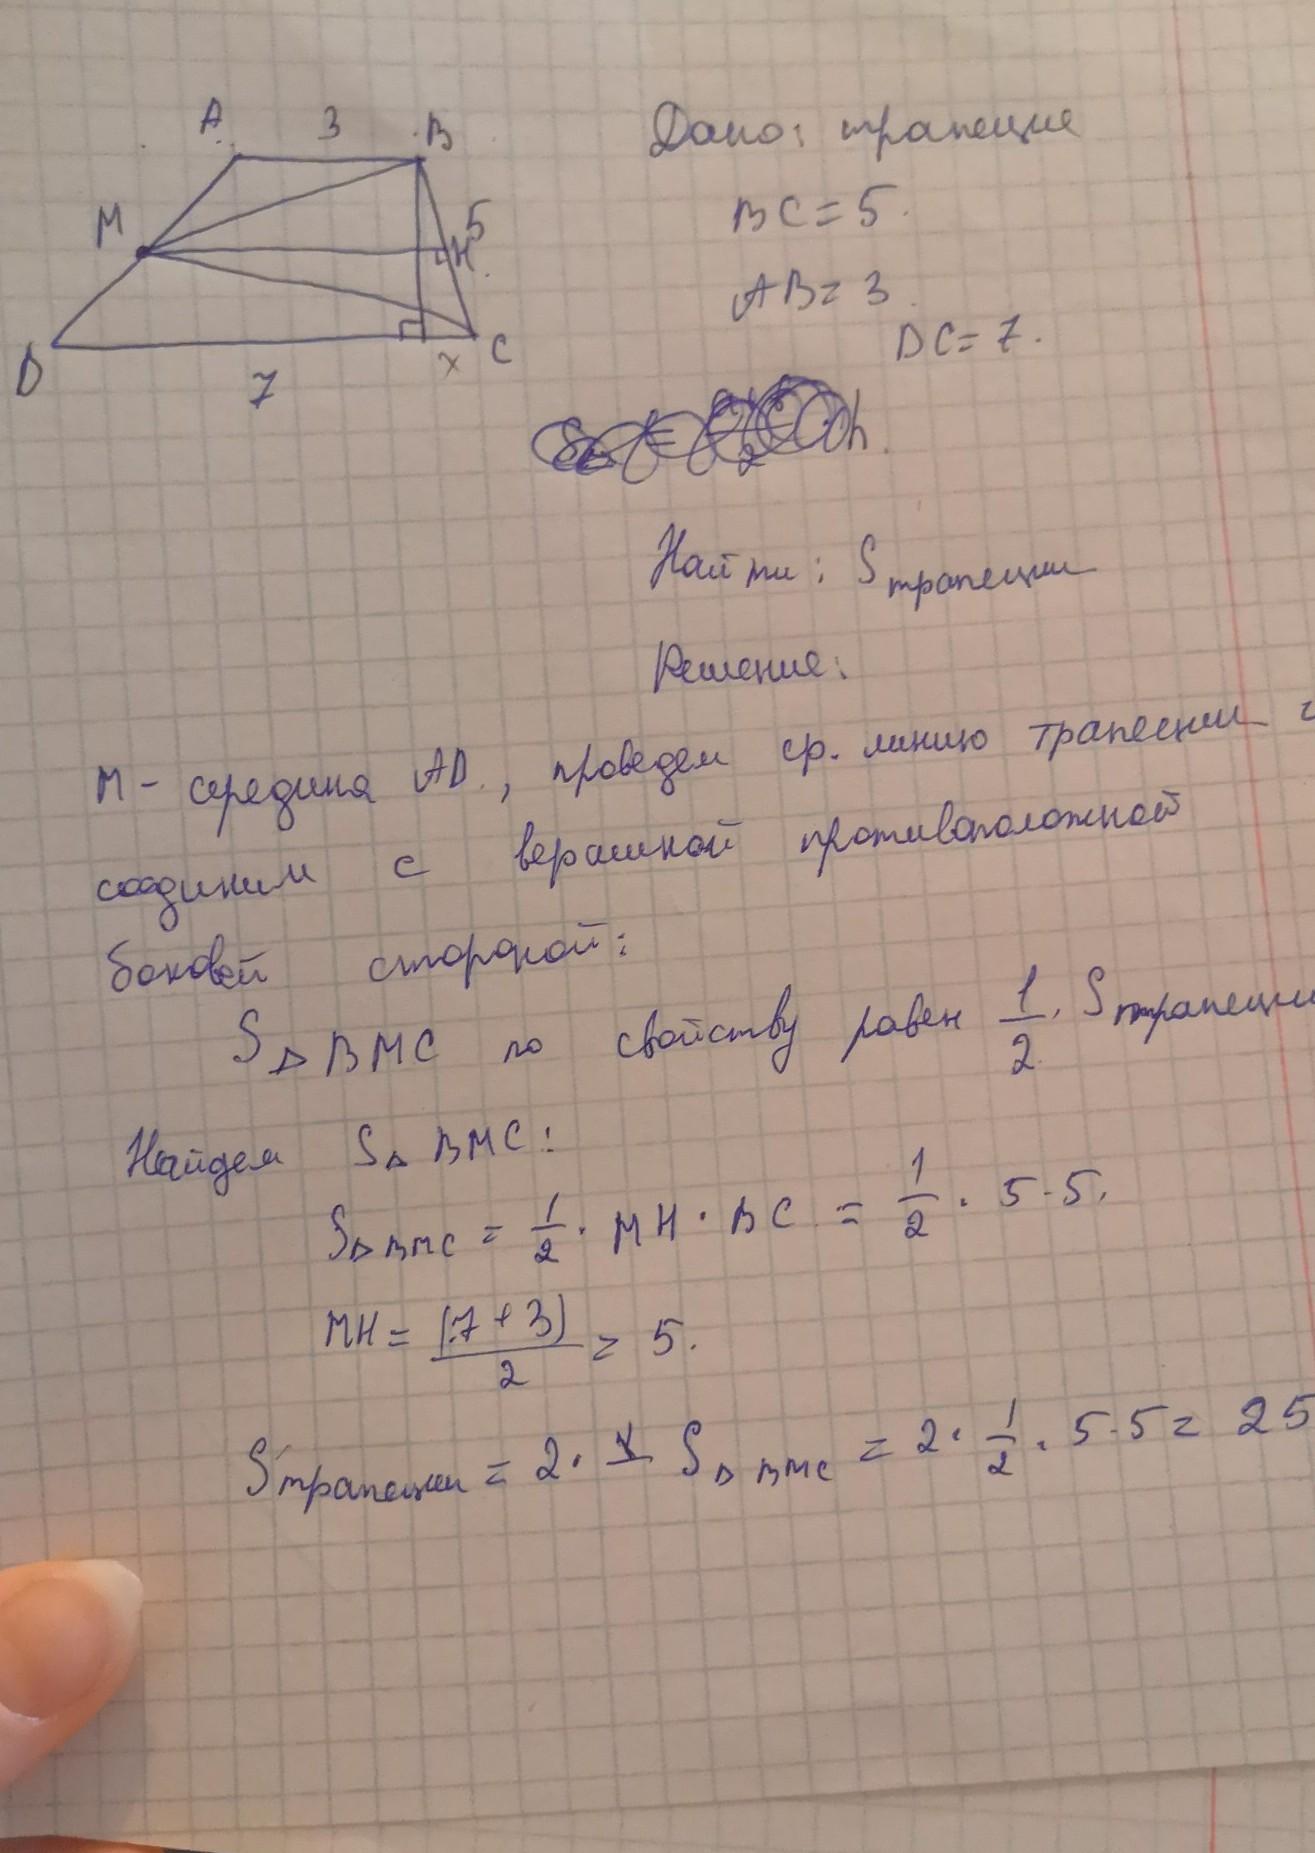 A 3 B
M 5
H
D 7 x C
Дано: трапеция
BC = 5.
AB = 3.
DC = 7.
h.
Найти: S трапеции
Решение:
M - середина AD., проведем ср. линию трапеции и
соединим с вершиной противоположной
боковой стороной:
S△BMC по свойству равен 1/2 · S трапеции
Найдем S△BMC:
S△BMC = 1/2 · MH · BC = 1/2 · 5 · 5.
MH = (7 + 3)/2 = 5.
S трапеции = 2 · S△BMC = 2 · 1/2 · 5 · 5 = 25